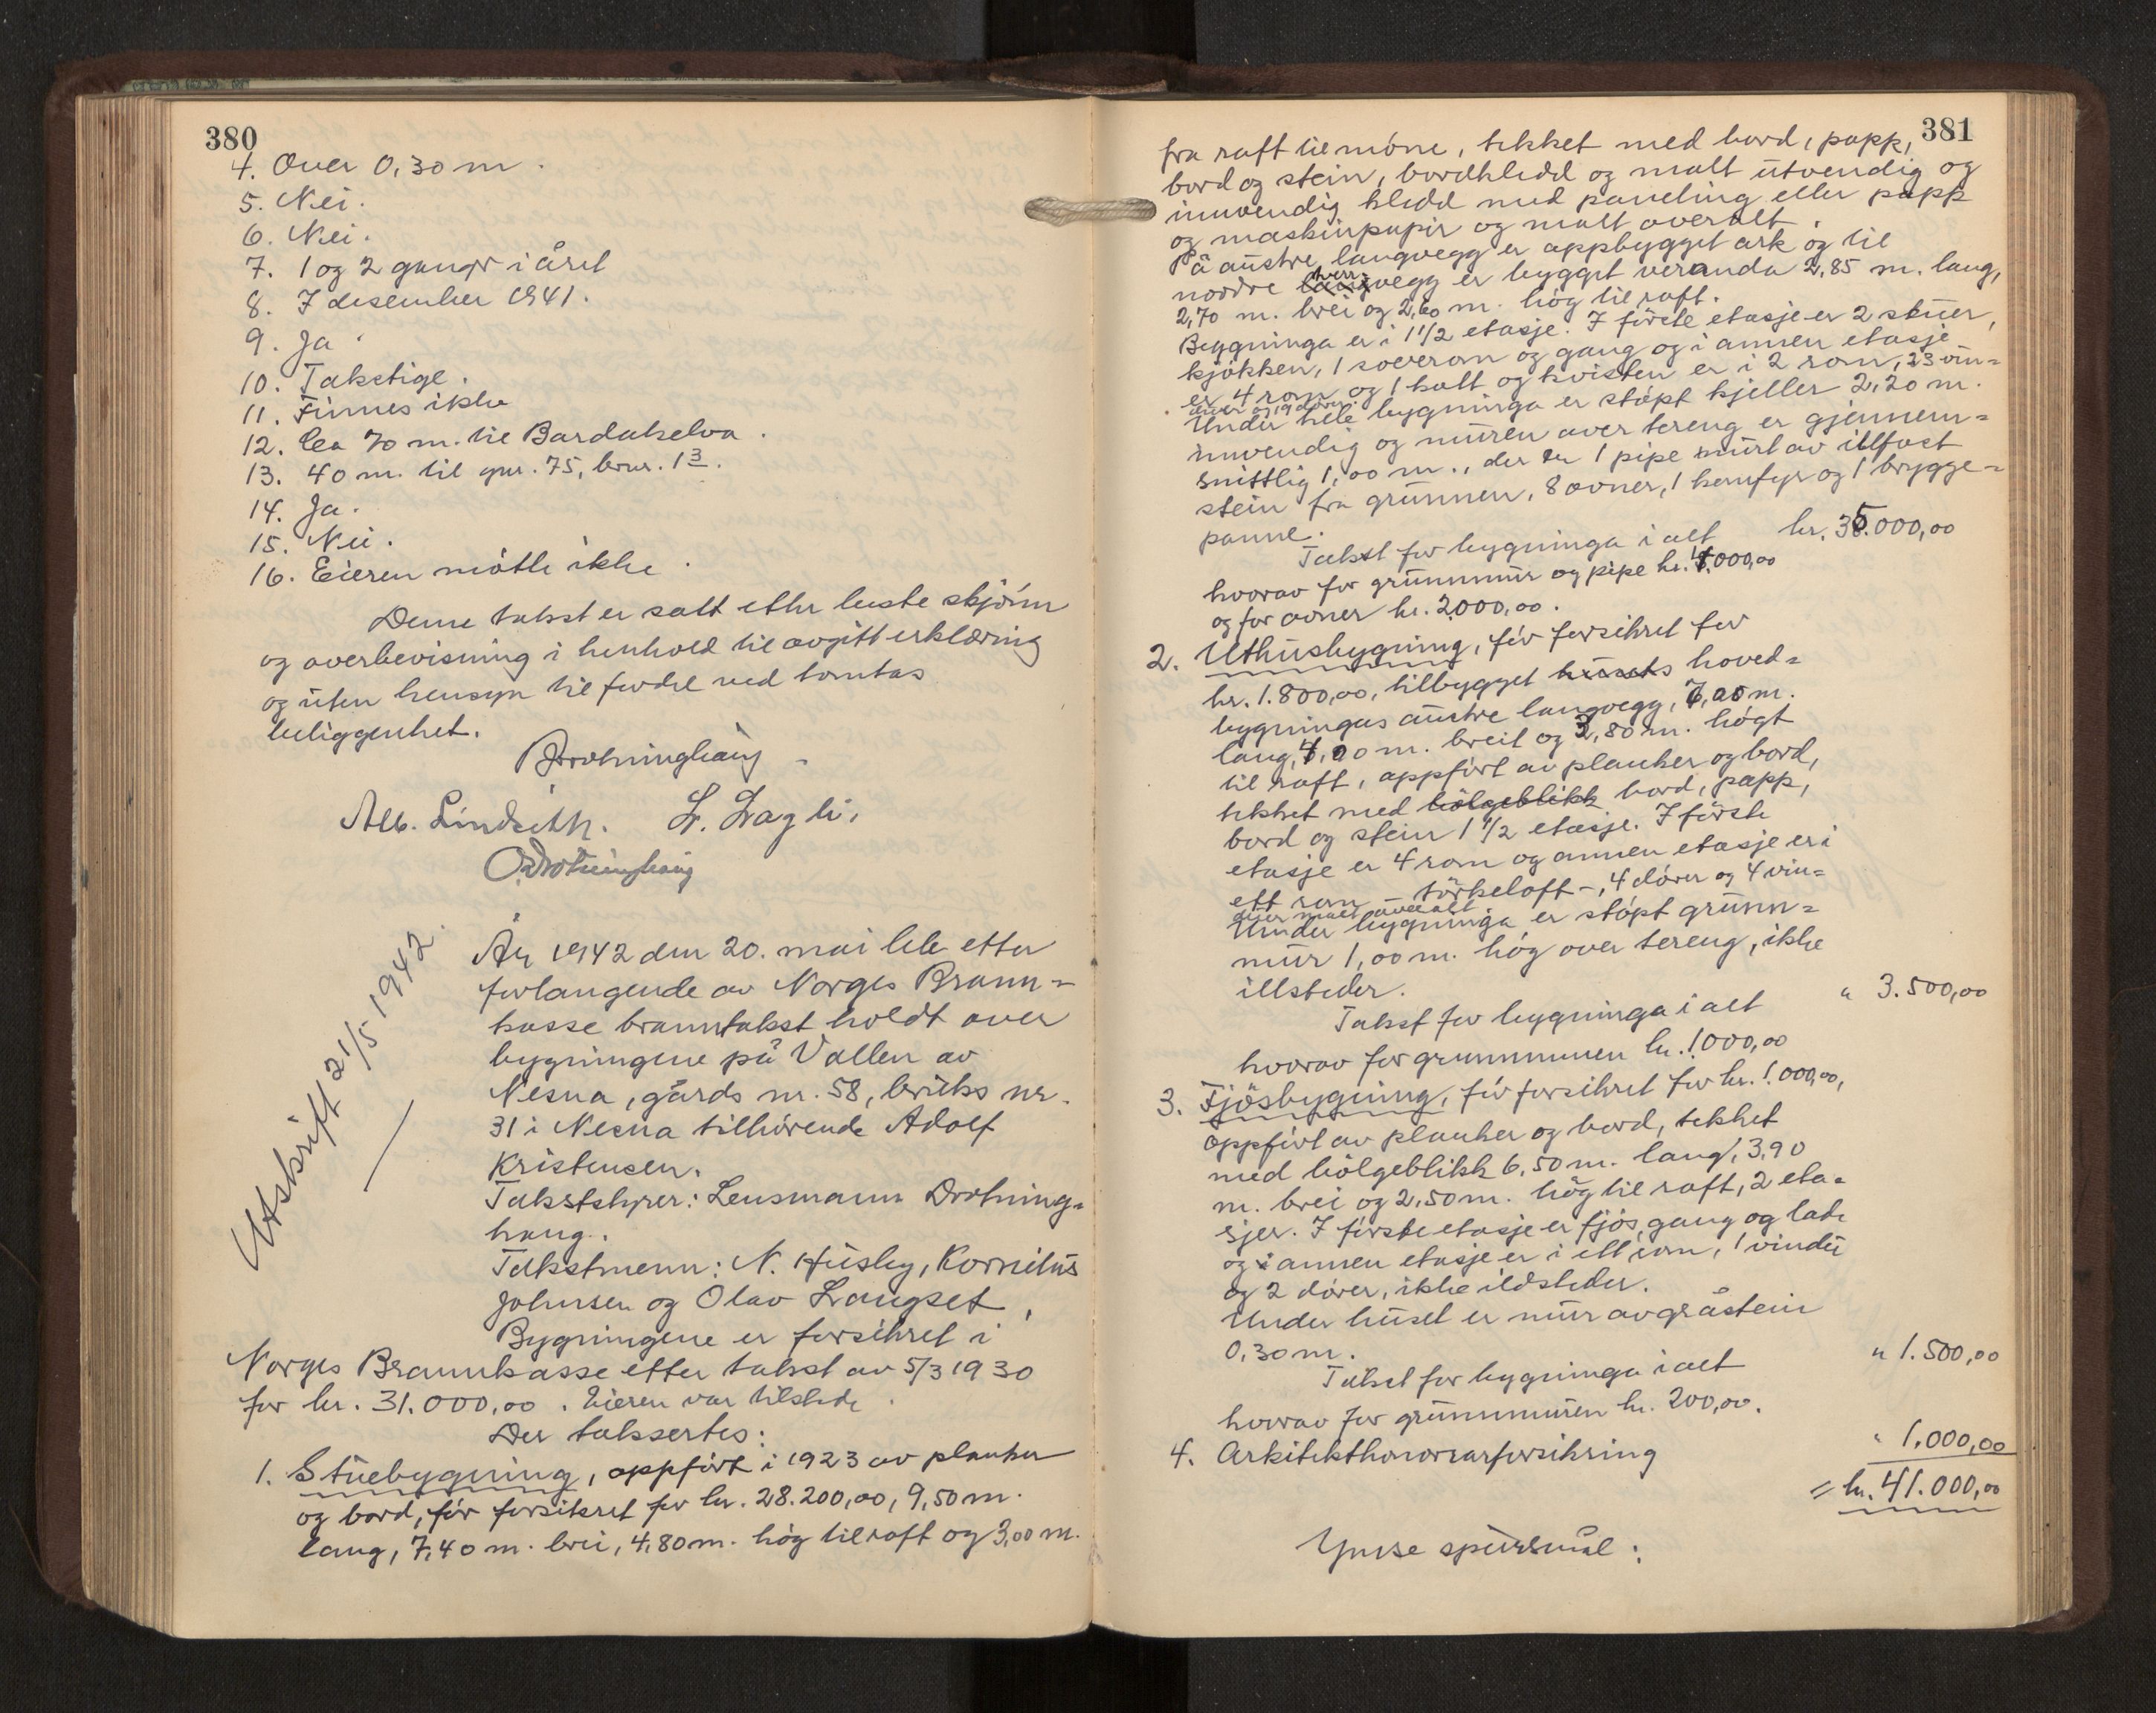 380
4. Over 0,30 m.
5. Nei.
6. Nei.
7. 1 og 2 ganger i året
8. 7 desember 1941.
9. Ja.
10. Takstige.
11. Finnes ikke
12. Ca 70 m. til Bardalselva.
13. 40 m. til gnr. 75, brnr. 13.
14. Ja.
15. Nei.
16. Eieren møtte ikke.
Denne takst er satt etter beste skjønn
og overbevisning i henhold til avgitt erklæring
og uten hensyn til fordel ved tomtas
beliggenhet.
Drotninghaug
Alb. Lindseth. L. Dagli,
O. Drotninghaug
Utskrift 21/5 1942.
År 1942 den 20. mai ble etter
forlangende av Norges Brann-
kasse branntakst holdt over
bygningene på Vallen av
Nesna, gårds nr. 58, bruks nr.
31 i Nesna tilhørende Adolf
Kristensen.
Takststyrer: Lensmann Drotning-
haug.
Takstmenn: N. Husby, Kornelius
Johnsen og Olav Langset,
Bygningene er forsikret i
Norges Brannkasse etter takst av 5/3 1930
for kr. 31.000,00. Eieren var tilstede.
Der taksertes:
1. Stuebygning, oppført i 1923 av planker
og bord, før forsikret for kr. 28.200,00, 9,50 m.
lang, 7,40 m. brei, 4,80 m. høg til raft og 3,00 m.
381
fra raft til møne, tekket med bord, papp,
bord og stein, bordkledd og malt utvendig og
innvendig kledd med paneling eller papp
og maskinpapir og malt overalt.
På austre langvegg er oppbygget ark og til
nordre tverrvegg er bygget veranda 2,85 m. lang,
2,70 m. brei og 2,60 m. høg til raft.
Bygninga er i 1 1/2 etasje. I første etasje er 2 stuer,
kjøkken, 1 soverom og gang og i annen etasje
er 4 rom og 1 kott og kvisten er i 2 rom, 23 vin-
duer og 19 dører.
Under hele bygninga er støpt kjeller 2,20 m.
innvendig og muren over tereng er gjennem-
snittlig 1,00 m., der er 1 pipe murt av ildfast
stein fra grunnen, 8 ovner, 1 komfyr og 1 brygge-
panne.
Takst for bygninga i alt kr. 35.000,00
hvorav for grunnmur og pipe kr. 4.000,00
og for ovner kr. 2000,00.
2. Uthusbygning, før forsikret for
kr. 1.800,00, tilbygget husets hoved-
bygningas austre langvegg, 7,00 m.
lang, 4,20 m. breit og 3,80 m. høgt
til raft, oppført av planker og bord,
tekket med bølgeblikk bord, papp,
bord og stein 1 1/2 etasje. I første
etasje er 4 rom og annen etasje er i
ett rom – tørkeloft –, 4 dører og 4 vin-
duer malt overalt
Under bygninga er støpt grunn-
mur 1,00 m. høg over tereng, ikke
illsteder.
Takst for bygninga i alt " 3.500,00
hvorav for grunnmuren kr. 1.000,00
3. Fjøsbygning, før forsikret for kr. 1.000,00,
oppført av planker og bord, tekket
med bølgeblikk 6,50 m. lang, 3,90
m. brei og 2,50 m. høg til raft, 2 eta-
sjer. I første etasje er fjøs, gang og lade
og i annen etasje er i ett rom, 1 vindu
og 2 dører, ikke ildsteder.
Under huset er mur av gråstein
0,30 m.
Takst for bygninga i alt " 1.500,00
hvorav for grunnmuren kr. 200,00.
4. Arkitekthonorarforsikring " 1.000,00
= kr. 41.000,00
Ymse spursmål: